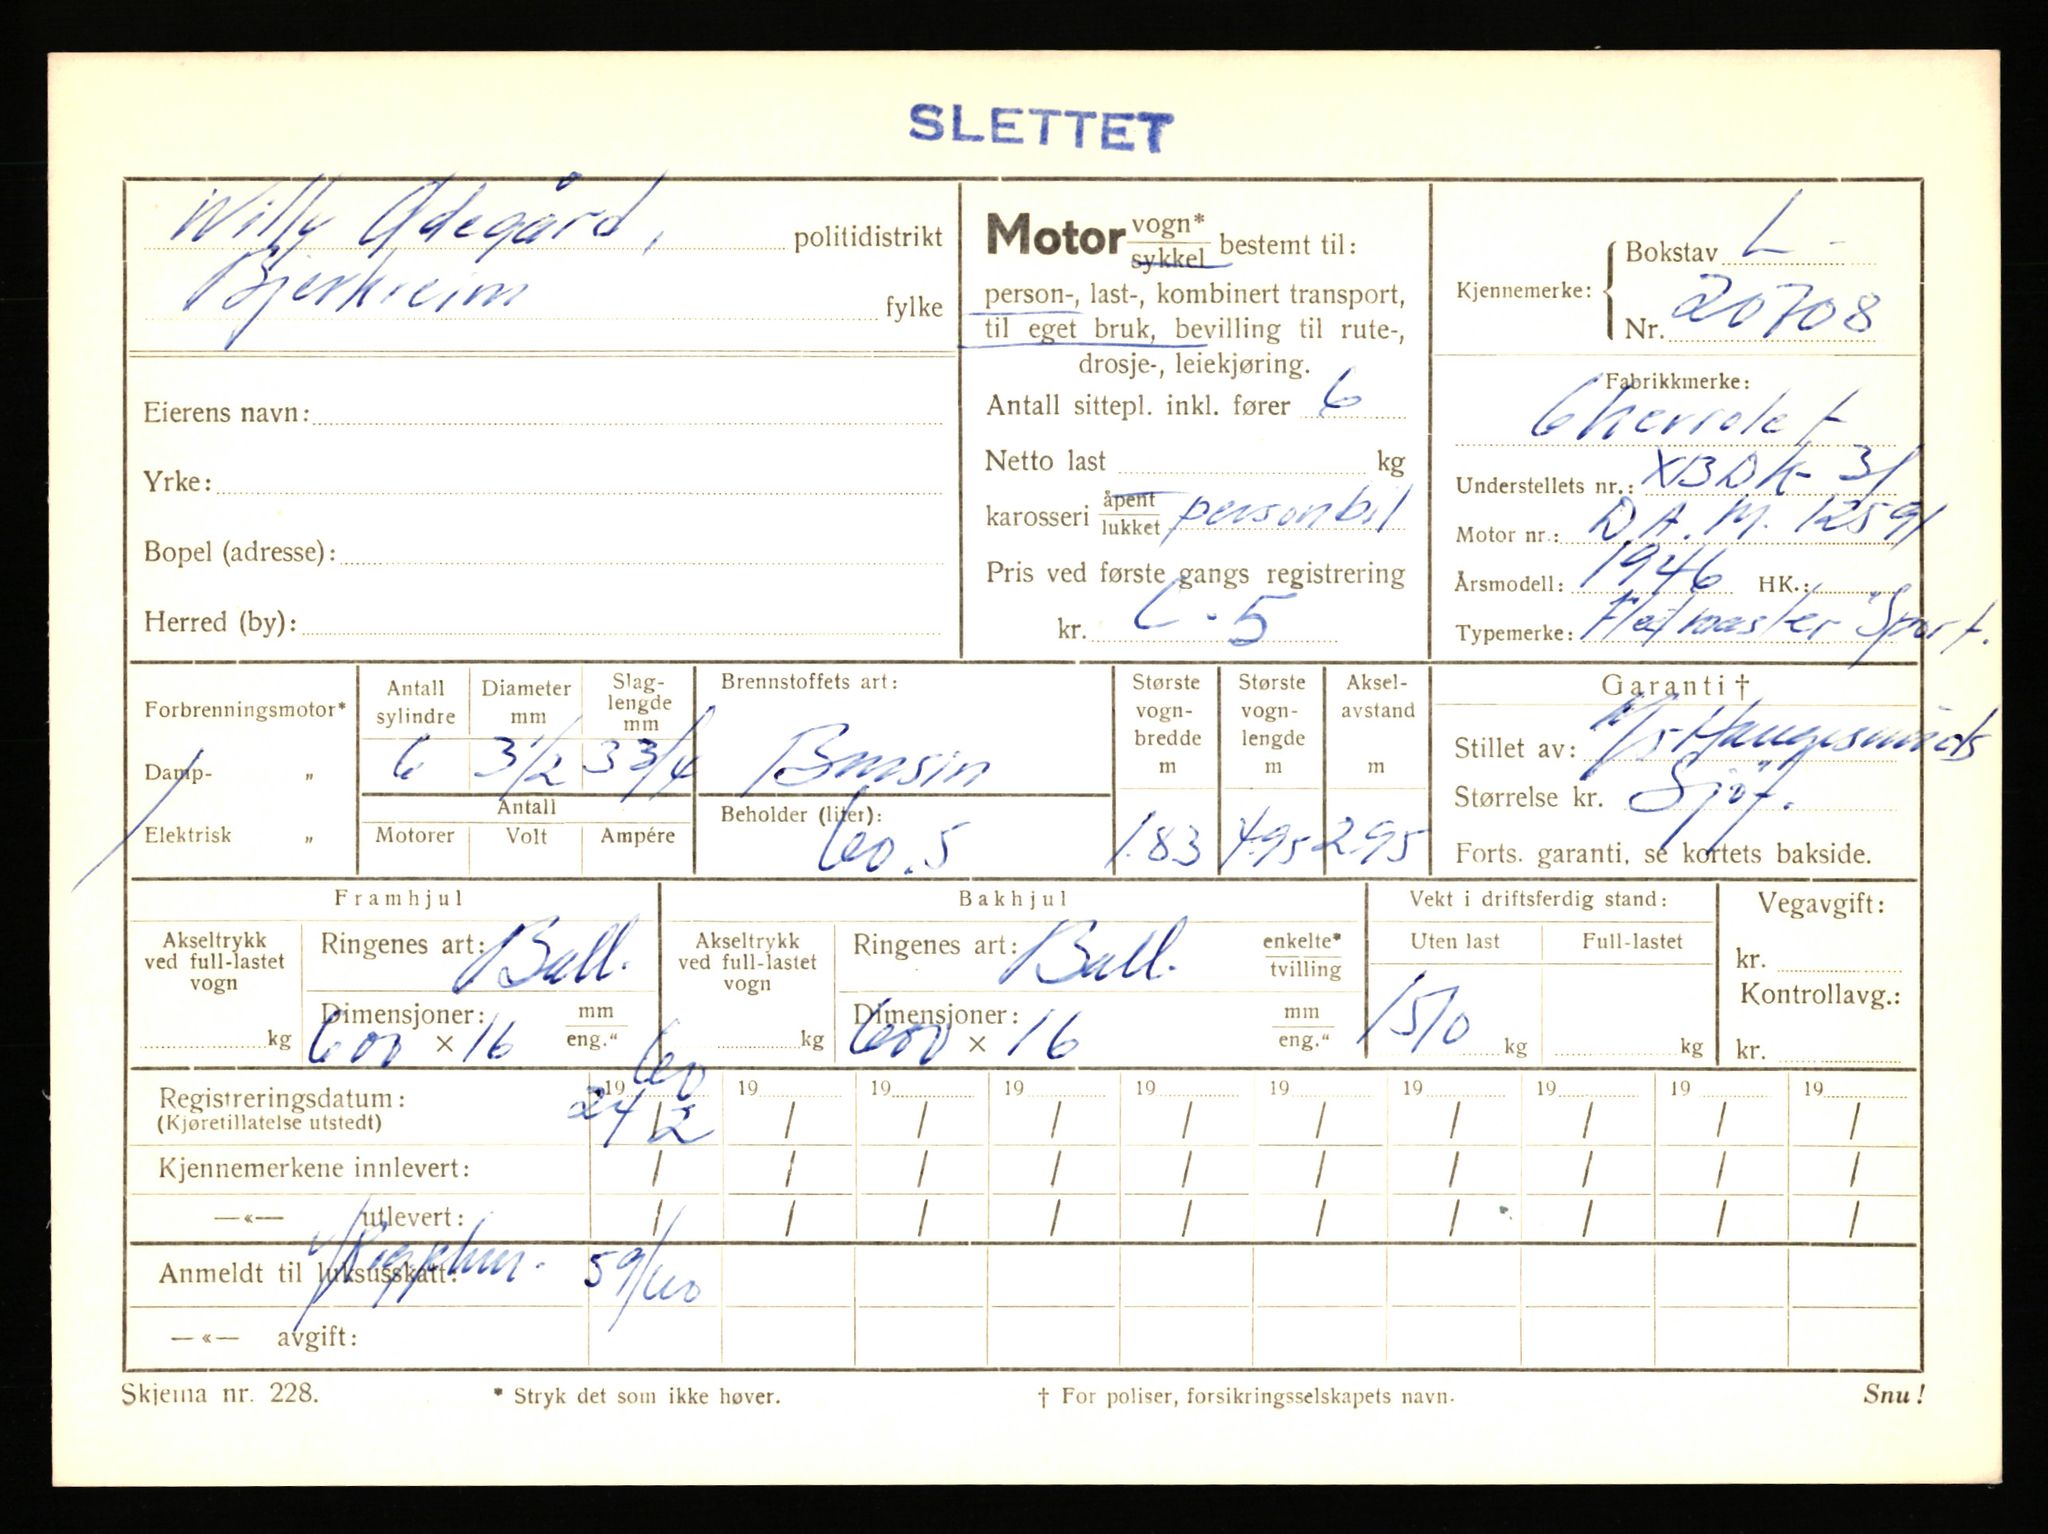 SLETTET
Willy Ødegård, politidistrikt
Bjerkreim fylke
Eierens navn:
Yrke:
Bopel (adresse):
Herred (by):
Motor vogn* sykkel bestemt til:
person-, last-, kombinert transport,
til eget bruk, bevilling til rute-,
drosje-, leiekjøring.
Antall sittepl. inkl. fører 6
Netto last kg
karosseri åpent lukket personbil
Pris ved første gangs registrering
kr. C-5
Kjennemerke: Bokstav L-
Nr. 20708
Fabrikkmerke:
Chevrolet
Understellets nr.: XBDK-31
Motor nr.: D.A.M. 12591
Årsmodell: 1946 HK.:
Typemerke: Fleetmaster "Sport.
Forbrenningsmotor*
Damp- „
Elektrisk „
Antall sylindre Diameter mm Slag-lengde mm
6 3 1/2 3 3/4
Antall
Motorer Volt Ampére
Brennstoffets art:
Bensin
Beholder (liter):
60.5
Største vogn-bredde m Største vogn-lengde m Aksel-avstand m
1.83 4.95 295
Garanti †
Stillet av: Haugesunds
Størrelse kr. Sjøf.
Forts. garanti, se kortets bakside.
Framhjul
Akseltrykk ved full-lastet vogn
kg
Ringenes art: Ball.
Dimensjoner: mm eng."
600 × 16
Bakhjul
Akseltrykk ved full-lastet vogn
kg
Ringenes art: Ball. enkelte* tvilling
Dimensjoner: mm eng."
600 × 16
Vekt i driftsferdig stand:
Uten last Full-lastet
1510 kg kg
Vegavgift:
kr.
Kontrollavg.:
kr.
19 60 19 19 19 19 19 19 19 19 19
Registreringsdatum: 24/2 / / / / / / / / /
(Kjøretillatelse utstedt)
Kjennemerkene innlevert: / / / / / / / / / /
—«— utlevert: / / / / / / / / / /
Anmeldt til luksusskatt: 59/60
—«— avgift:
Skjema nr. 228. * Stryk det som ikke høver. † For poliser, forsikringsselskapets navn. Snu!